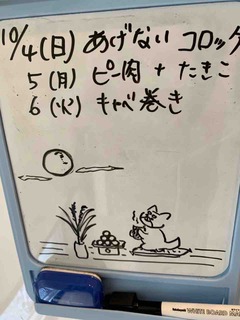 10/4(日) あげない コロッケ
5 (月) ピー肉 + たきこ
6 (火) キャベ巻き
WHITE BOARD MA